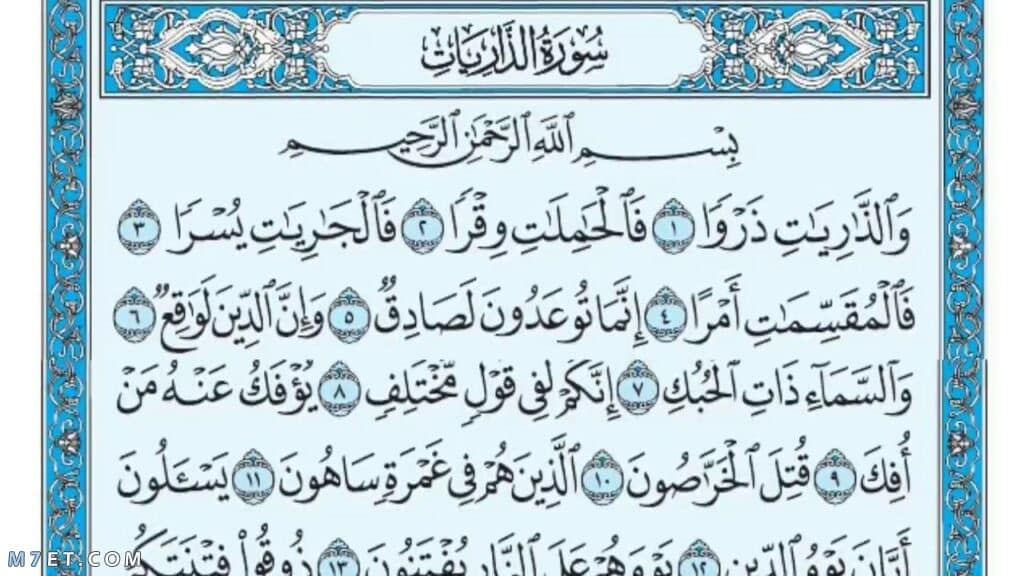 سُورَةُ الذَّارِيَاتِ
بِسْمِ ٱللَّهِ ٱلرَّحْمَٰنِ ٱلرَّحِيمِ
وَٱلذَّٰرِيَٰتِ ذَرْوًا ١ فَٱلْحَٰمِلَٰتِ وِقْرًا ٢ فَٱلْجَٰرِيَٰتِ يُسْرًا ٣
فَٱلْمُقَسِّمَٰتِ أَمْرًا ٤ إِنَّمَا تُوعَدُونَ لَصَادِقٌ ٥ وَإِنَّ ٱلدِّينَ لَوَٰقِعٌ ٦
وَٱلسَّمَآءِ ذَاتِ ٱلْحُبُكِ ٧ إِنَّكُمْ لَفِى قَوْلٍ مُّخْتَلِفٍ ٨ يُؤْفَكُ عَنْهُ مَنْ
أُفِكَ ٩ قُتِلَ ٱلْخَرَّٰصُونَ ١٠ ٱلَّذِينَ هُمْ فِى غَمْرَةٍ سَاهُونَ ١١ يَسْـَٔلُونَ
أَيَّانَ يَوْمُ ٱلدِّينِ ١٢ يَوْمَ هُمْ عَلَى ٱلنَّارِ يُفْتَنُونَ ١٣ ذُوقُوا۟ فِتْنَتَكُمْ
M7ET.COM